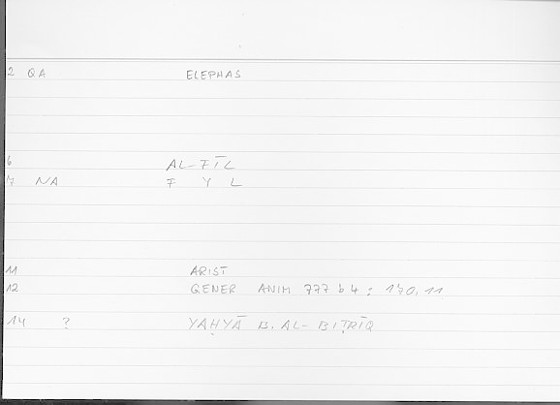 2 QA ELEPHAS
6 AL-FĪL
7 NA F Y L
11 ARIST
12 GENER ANIM 777 b 4 : 170, 11
14 ? YAḤYĀ B. AL-BIṬRĪQ